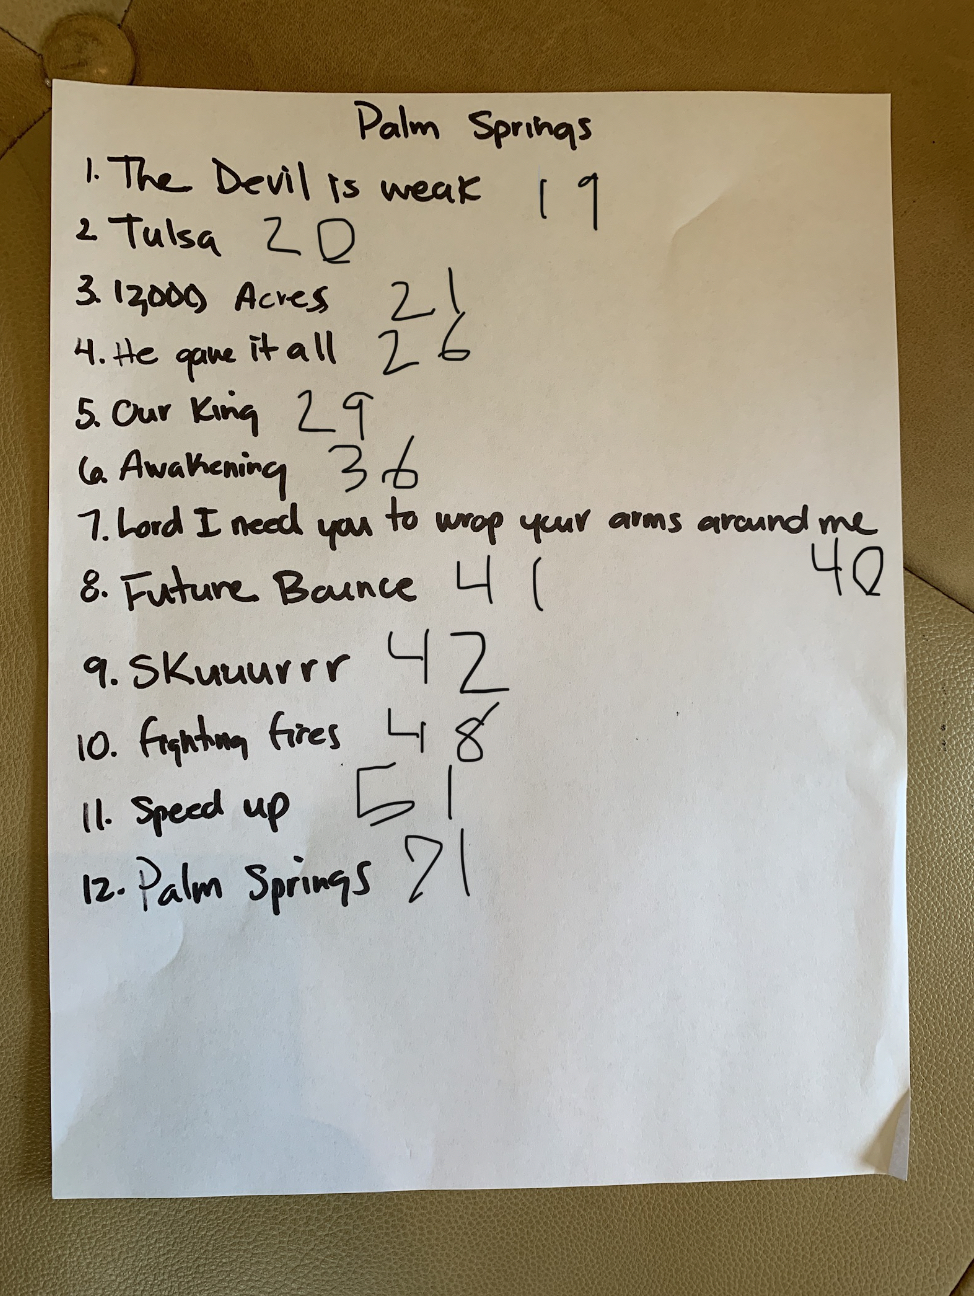 Palm Springs
1. The Devil is weak 19
2 Tulsa 20
3. 12,000 Acres 21
4. He gave it all 26
5. Our King 29
6. Awakening 36
7. Lord I need you to wrap your arms around me
40
8. Future Bounce 41
9. SKuuurrr 42
10. fighting fires 48
11. Speed up 51
12. Palm Springs 71